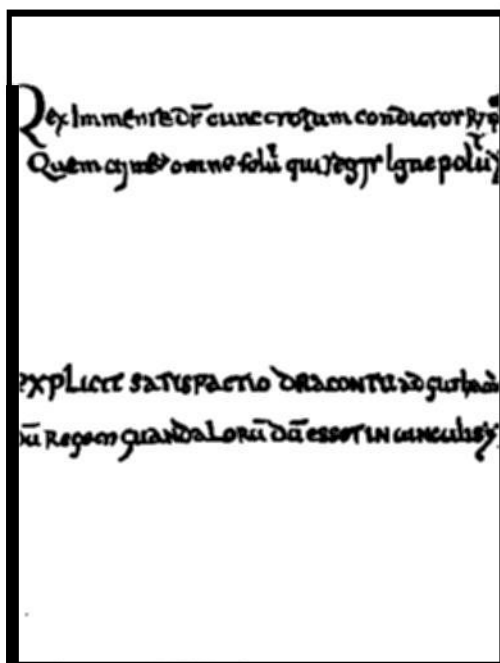 Rex Immense ds̄ cunectorum condictor
Quem omne solū qui regis Igne polū
EXPLICIT SATISFACTIO DRACONTII ad guthamū
dū Regem guandaLorū dū esset IN uinculis